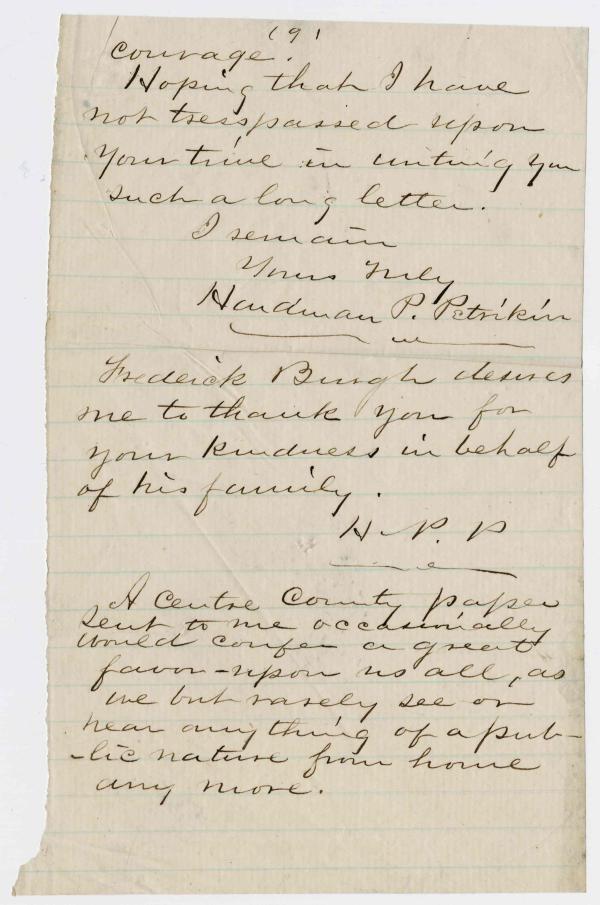 (9)
courage.
Hoping that I have
not tresspassed upon
your time in writing you
such a long letter.
I remain
Yours Truly
Hardman P. Petrikin
Frederick Burgh desires
me to thank you for
your kindness in behalf
of his family.
H. P. P
A Centre County paper
sent to me occasionally
would confer a great
favor-upon us all, as
we but rarely see or
hear anything of a pub-
-lic nature from home
any more.